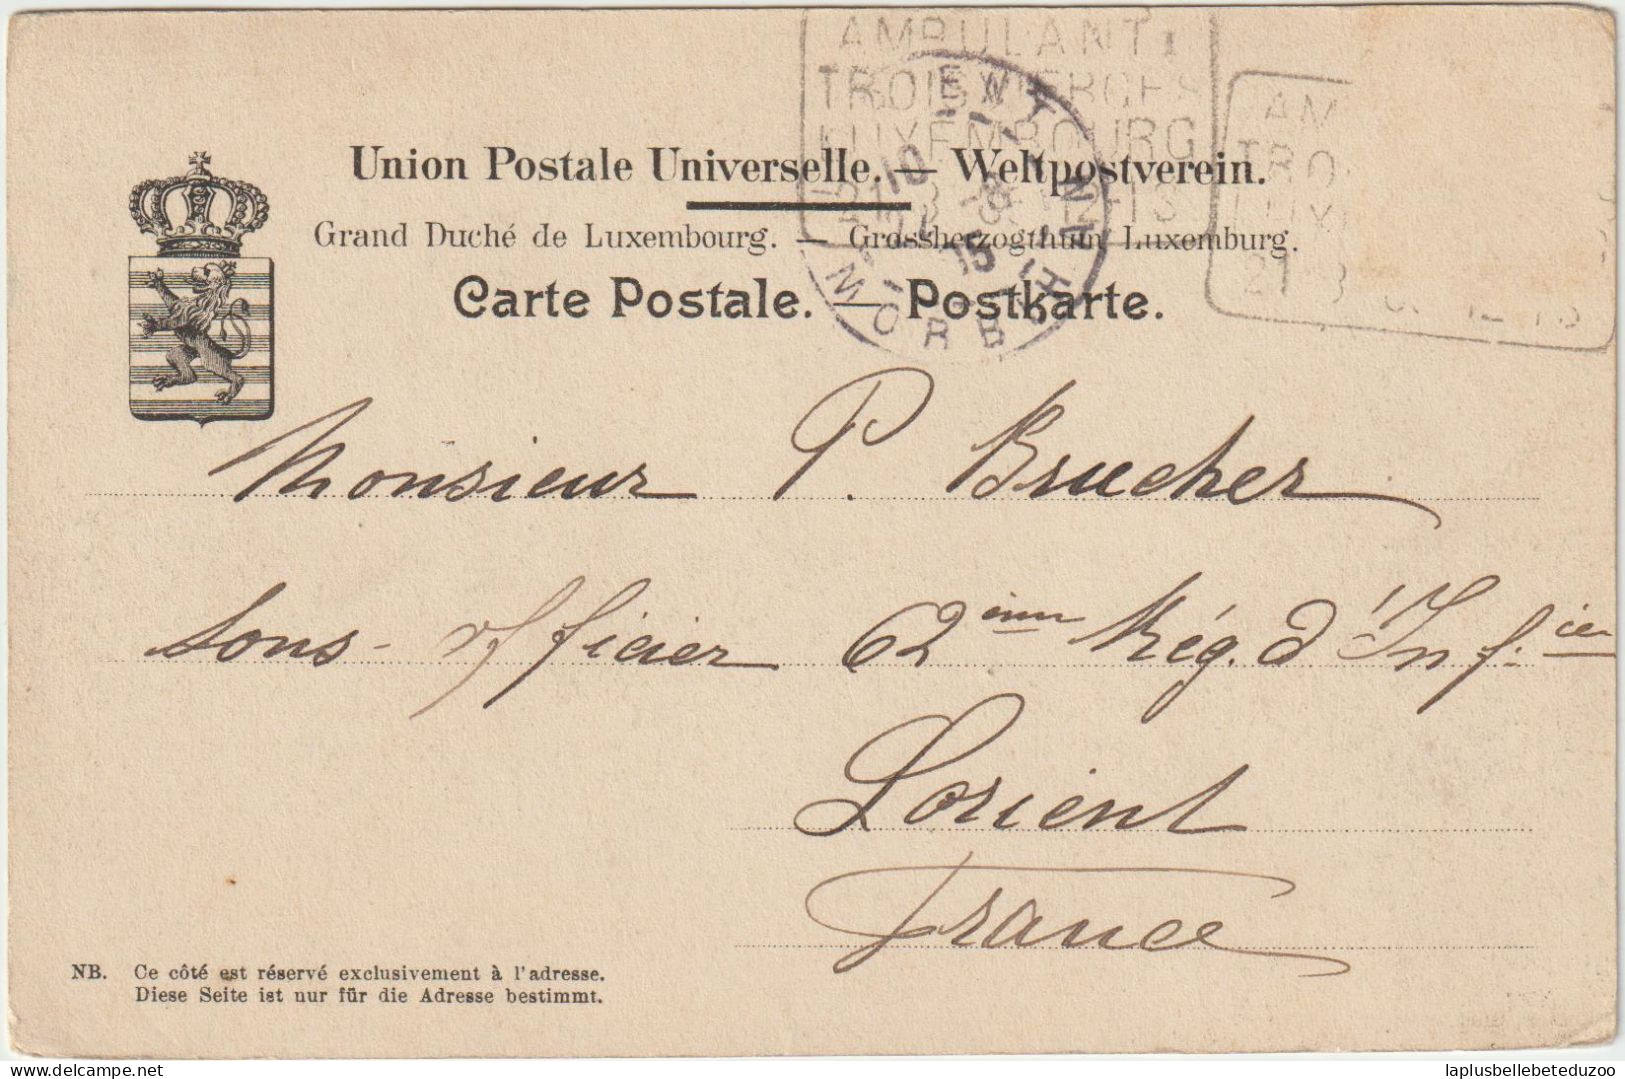 AMBULANT
TROISVIERGES
LUXEMBOURG
Union Postale Universelle. — Weltpostverein.
Grand Duché de Luxembourg. — Grossherzogthum Luxemburg.
Carte Postale. — Postkarte.
MORBIH
AM
TRO
LUX
Monsieur P. Brucher
Sous-officier 62ème Rég. d'Inf.ie
Lorient
France
NB. Ce côté est réservé exclusivement à l'adresse.
Diese Seite ist nur für die Adresse bestimmt.
laplusbellebeteduzoo